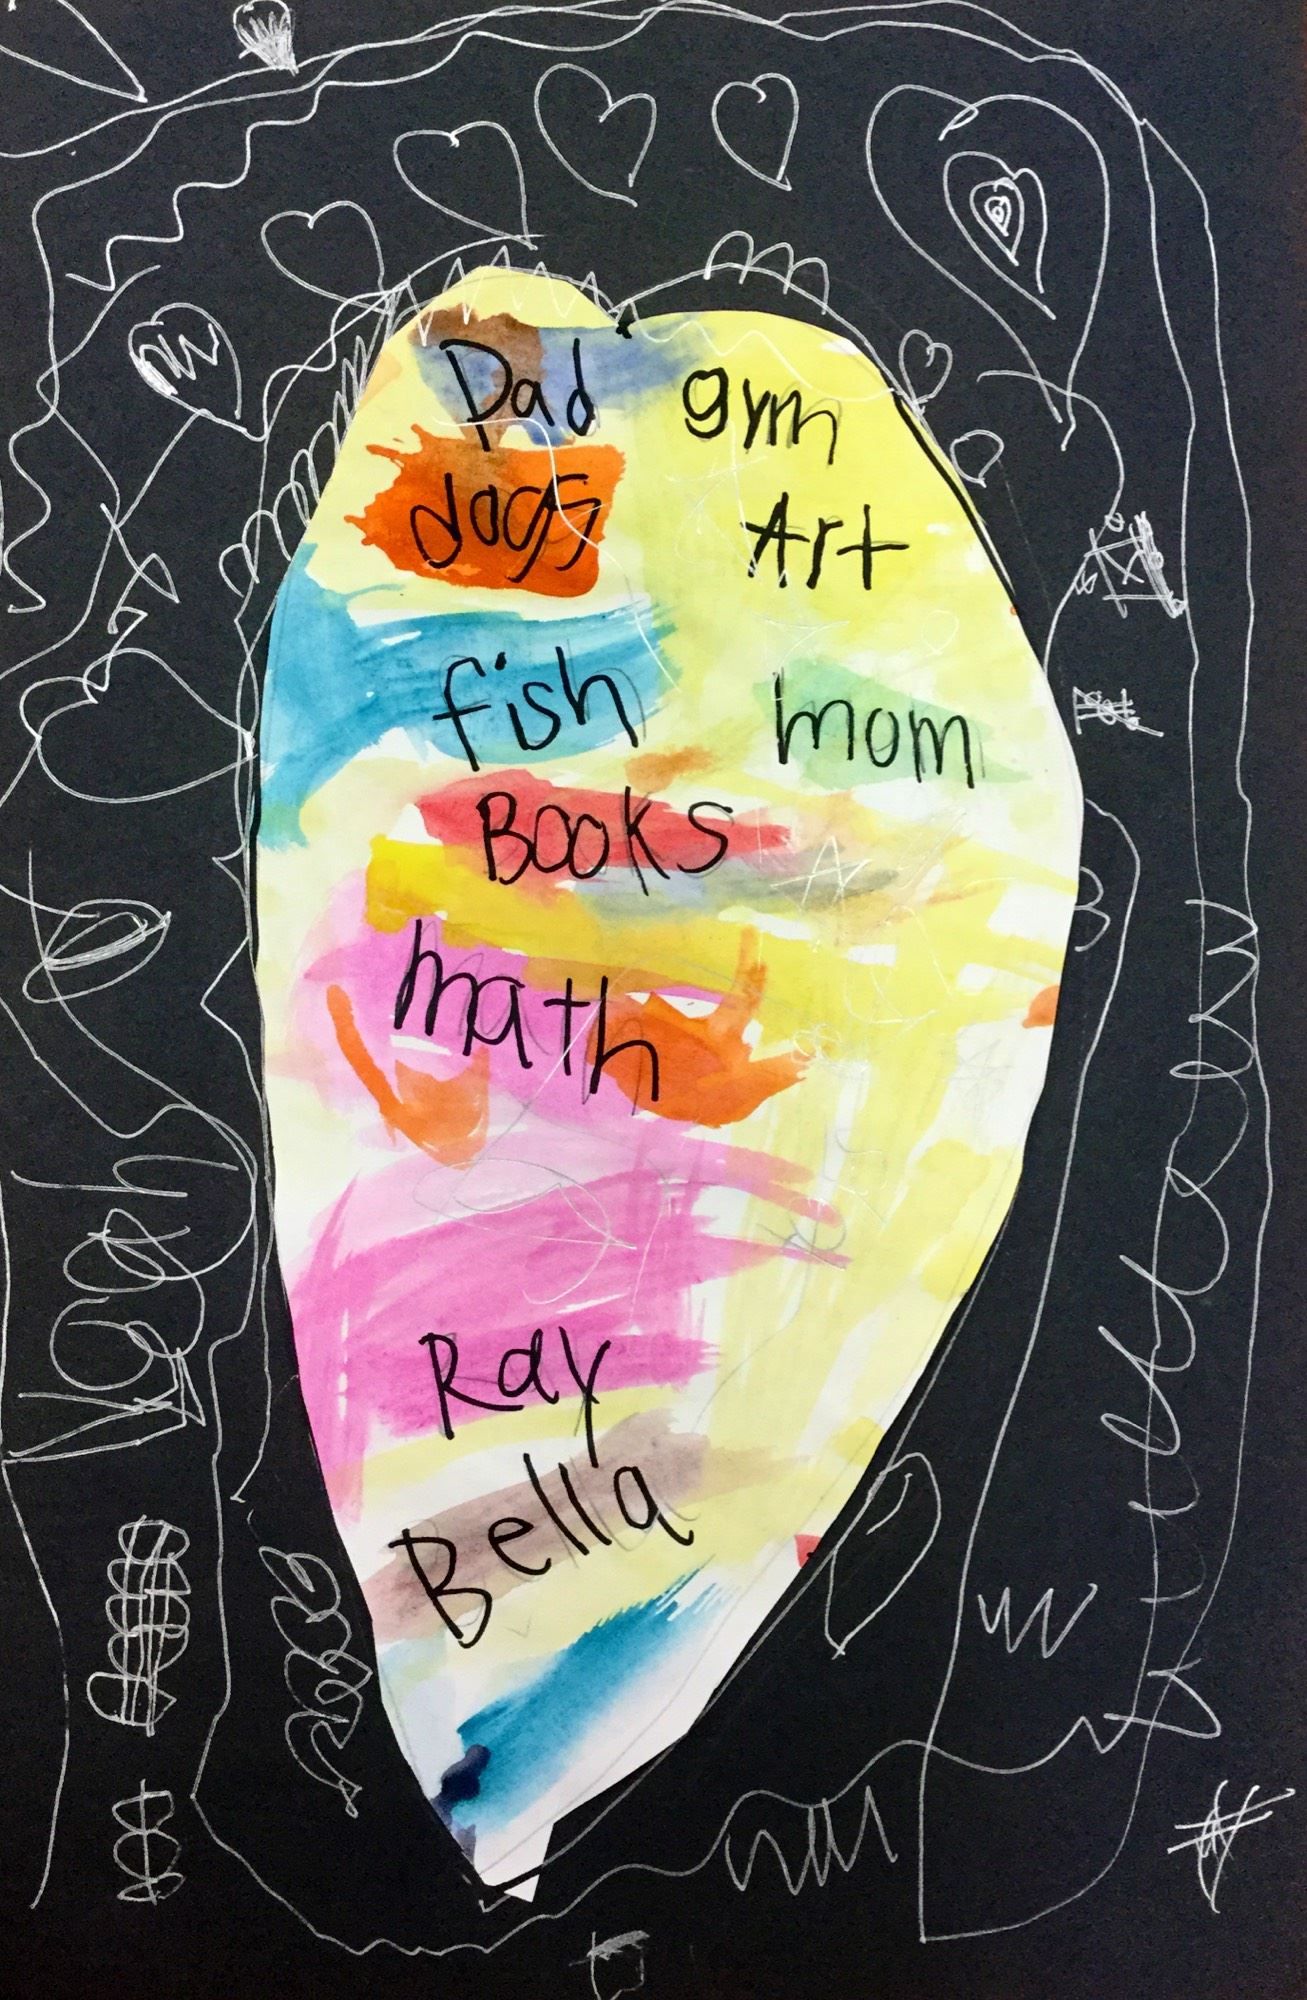 Dad gym
dogs
Art
fish
mom
Books
math
Ray
Bella